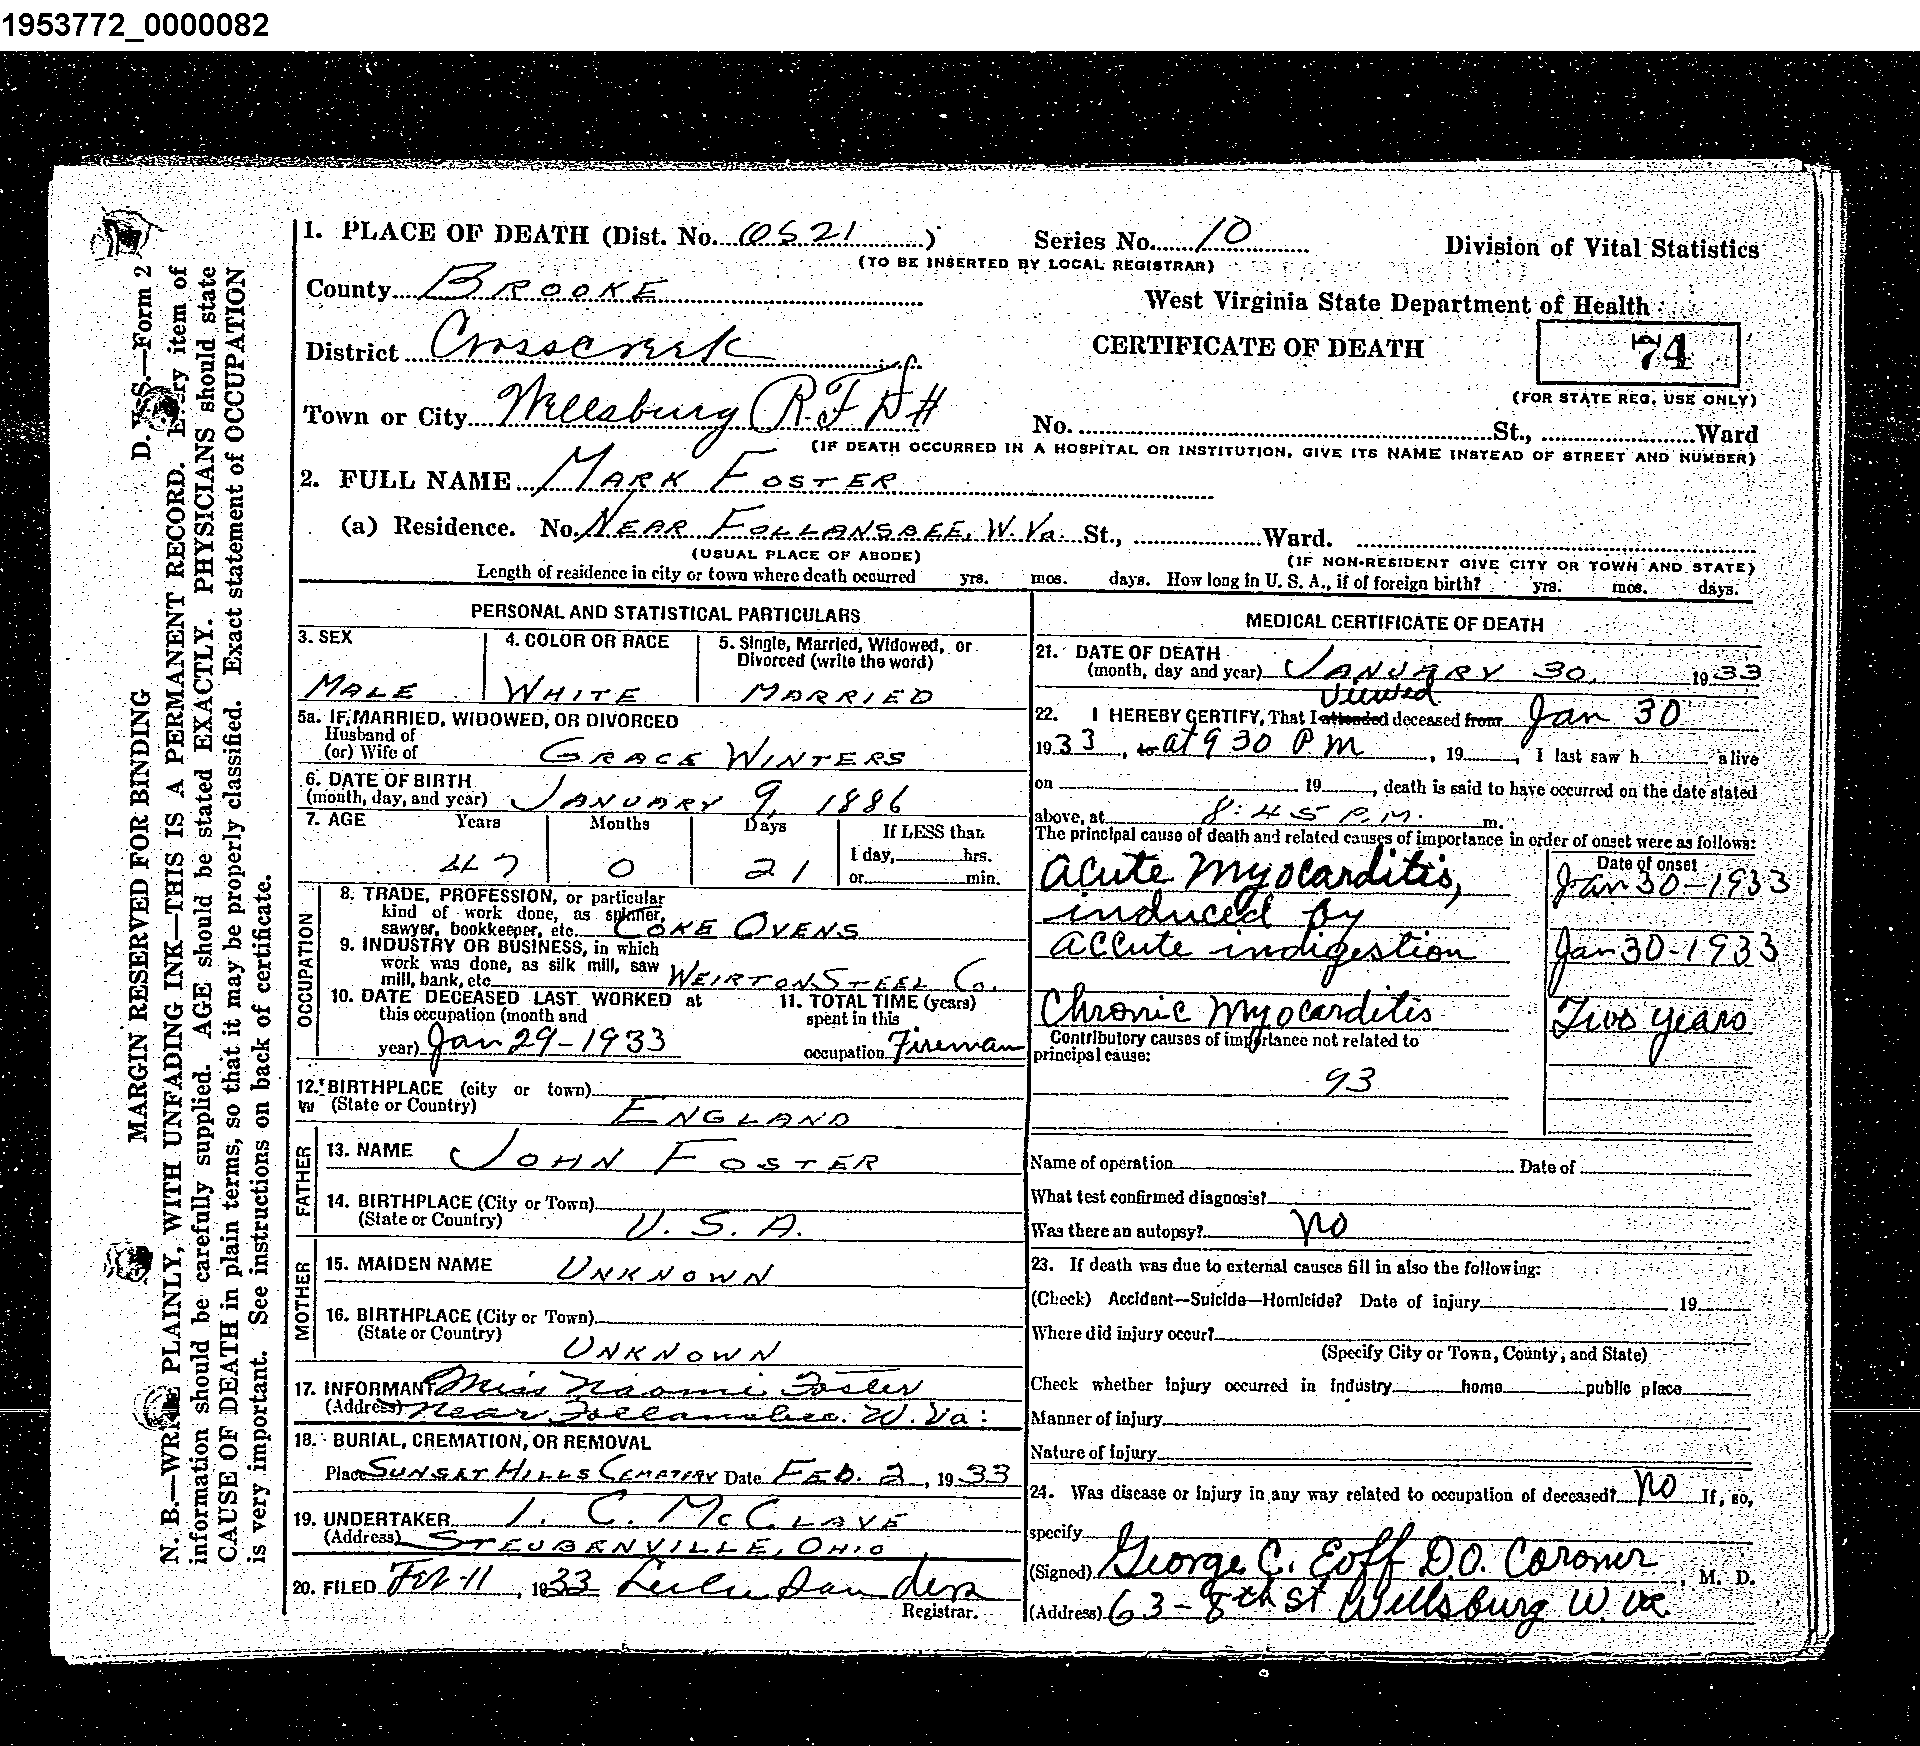 1953772_0000082
MARGIN RESERVED FOR BINDING D. V. S.—Form 2
N. B.—WRITE PLAINLY, WITH UNFADING INK—THIS IS A PERMANENT RECORD. Every item of
information should be carefully supplied. AGE should be stated EXACTLY. PHYSICIANS should state
CAUSE OF DEATH in plain terms, so that it may be properly classified. Exact statement of OCCUPATION
is very important. See instructions on back of certificate.
1. PLACE OF DEATH (Dist. No. 0521) Series No. 10 Division of Vital Statistics
(TO BE INSERTED BY LOCAL REGISTRAR)
County BROOKE West Virginia State Department of Health
District Crosscreek CERTIFICATE OF DEATH 74
(FOR STATE REG. USE ONLY)
Town or City Wellsburg R.F.D # No. St., Ward
(IF DEATH OCCURRED IN A HOSPITAL OR INSTITUTION, GIVE ITS NAME INSTEAD OF STREET AND NUMBER)
2. FULL NAME MARK FOSTER
(a) Residence. No. NEAR FOLLANSBEE, W. Va. St., Ward.
(USUAL PLACE OF ABODE) (IF NON-RESIDENT GIVE CITY OR TOWN AND STATE)
Length of residence in city or town where death occurred yrs. mos. days. How long in U. S. A., if of foreign birth? yrs. mos. days.
PERSONAL AND STATISTICAL PARTICULARS
3. SEX 4. COLOR OR RACE 5. Single, Married, Widowed, or
Divorced (write the word)
MALE WHITE MARRIED
5a. IF MARRIED, WIDOWED, OR DIVORCED
Husband of
(or) Wife of GRACE WINTERS
6. DATE OF BIRTH
(month, day, and year) JANUARY 9, 1886
7. AGE Years Months Days If LESS than
1 day, hrs.
47 0 21 or min.
OCCUPATION
8. TRADE, PROFESSION, or particular
kind of work done, as spinner,
sawyer, bookkeeper, etc. COKE OVENS
9. INDUSTRY OR BUSINESS, in which
work was done, as silk mill, saw
mill, bank, etc. WEIRTON STEEL Co.
10. DATE DECEASED LAST WORKED at 11. TOTAL TIME (years)
this occupation (month and spent in this
year) Jan 29-1933 occupation Fireman
12. BIRTHPLACE (city or town)
(State or Country) ENGLAND
FATHER
13. NAME JOHN FOSTER
14. BIRTHPLACE (City or Town)
(State or Country) U. S. A.
MOTHER
15. MAIDEN NAME UNKNOWN
16. BIRTHPLACE (City or Town)
(State or Country) UNKNOWN
17. INFORMANT Miss Naomi Foster
(Address) Near Follansbee. W. Va:
18. BURIAL, CREMATION, OR REMOVAL
Place SUNSET HILLS CEMETERY Date FEB. 2, 1933
19. UNDERTAKER I. C. McCLAVE
(Address) STEUBENVILLE, OHIO
20. FILED Feb-11, 1933 Lulu Sanders
Registrar.
MEDICAL CERTIFICATE OF DEATH
21. DATE OF DEATH
(month, day and year) JANUARY 30, 1933
viewed
22. I HEREBY CERTIFY, That I attended deceased from Jan 30
1933, to at 9 30 P m, 19 , I last saw h alive
on 19 , death is said to have occurred on the date stated
above, at 8:45 P.M. m.
The principal cause of death and related causes of importance in order of onset were as follows:
Date of onset
Acute Myocarditis, Jan 30-1933
induced by
accute indigestion Jan 30-1933
Chronic Myocarditis Two years
Contributory causes of importance not related to
principal cause:
93
Name of operation Date of
What test confirmed diagnosis?
Was there an autopsy? no
23. If death was due to external causes fill in also the following:
(Check) Accident—Suicide—Homicide? Date of injury 19
Where did injury occur?
(Specify City or Town, County, and State)
Check whether injury occurred in industry home public place
Manner of injury
Nature of injury
24. Was disease or injury in any way related to occupation of deceased? no If, so,
specify
(Signed) George C. Eoff D.O. Coroner, M. D.
(Address) 63-8th St Wellsburg W. va